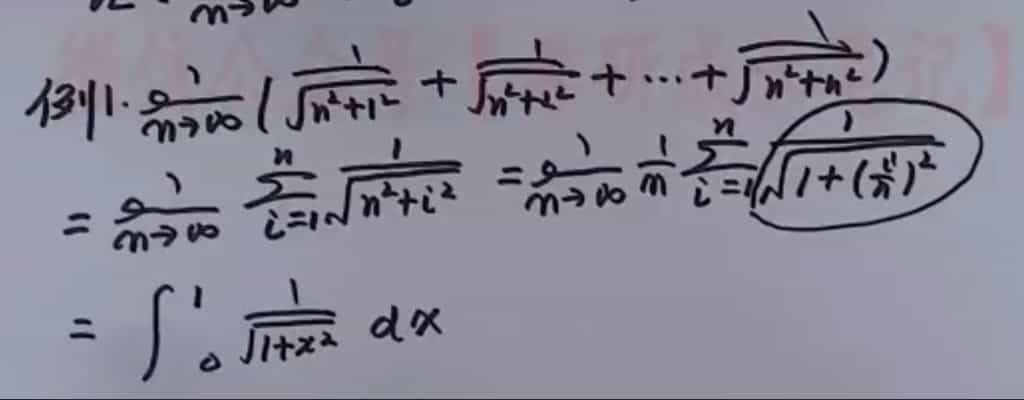 n→∞
例1. lim n→∞ ( 1/√(n²+1²) + 1/√(n²+2²) + ... + 1/√(n²+n²) )
= lim n→∞ Σ i=1 n 1/√(n²+i²) = lim n→∞ 1/n Σ i=1 n 1/√(1+(i/n)²)
= ∫₀¹ 1/√(1+x²) dx